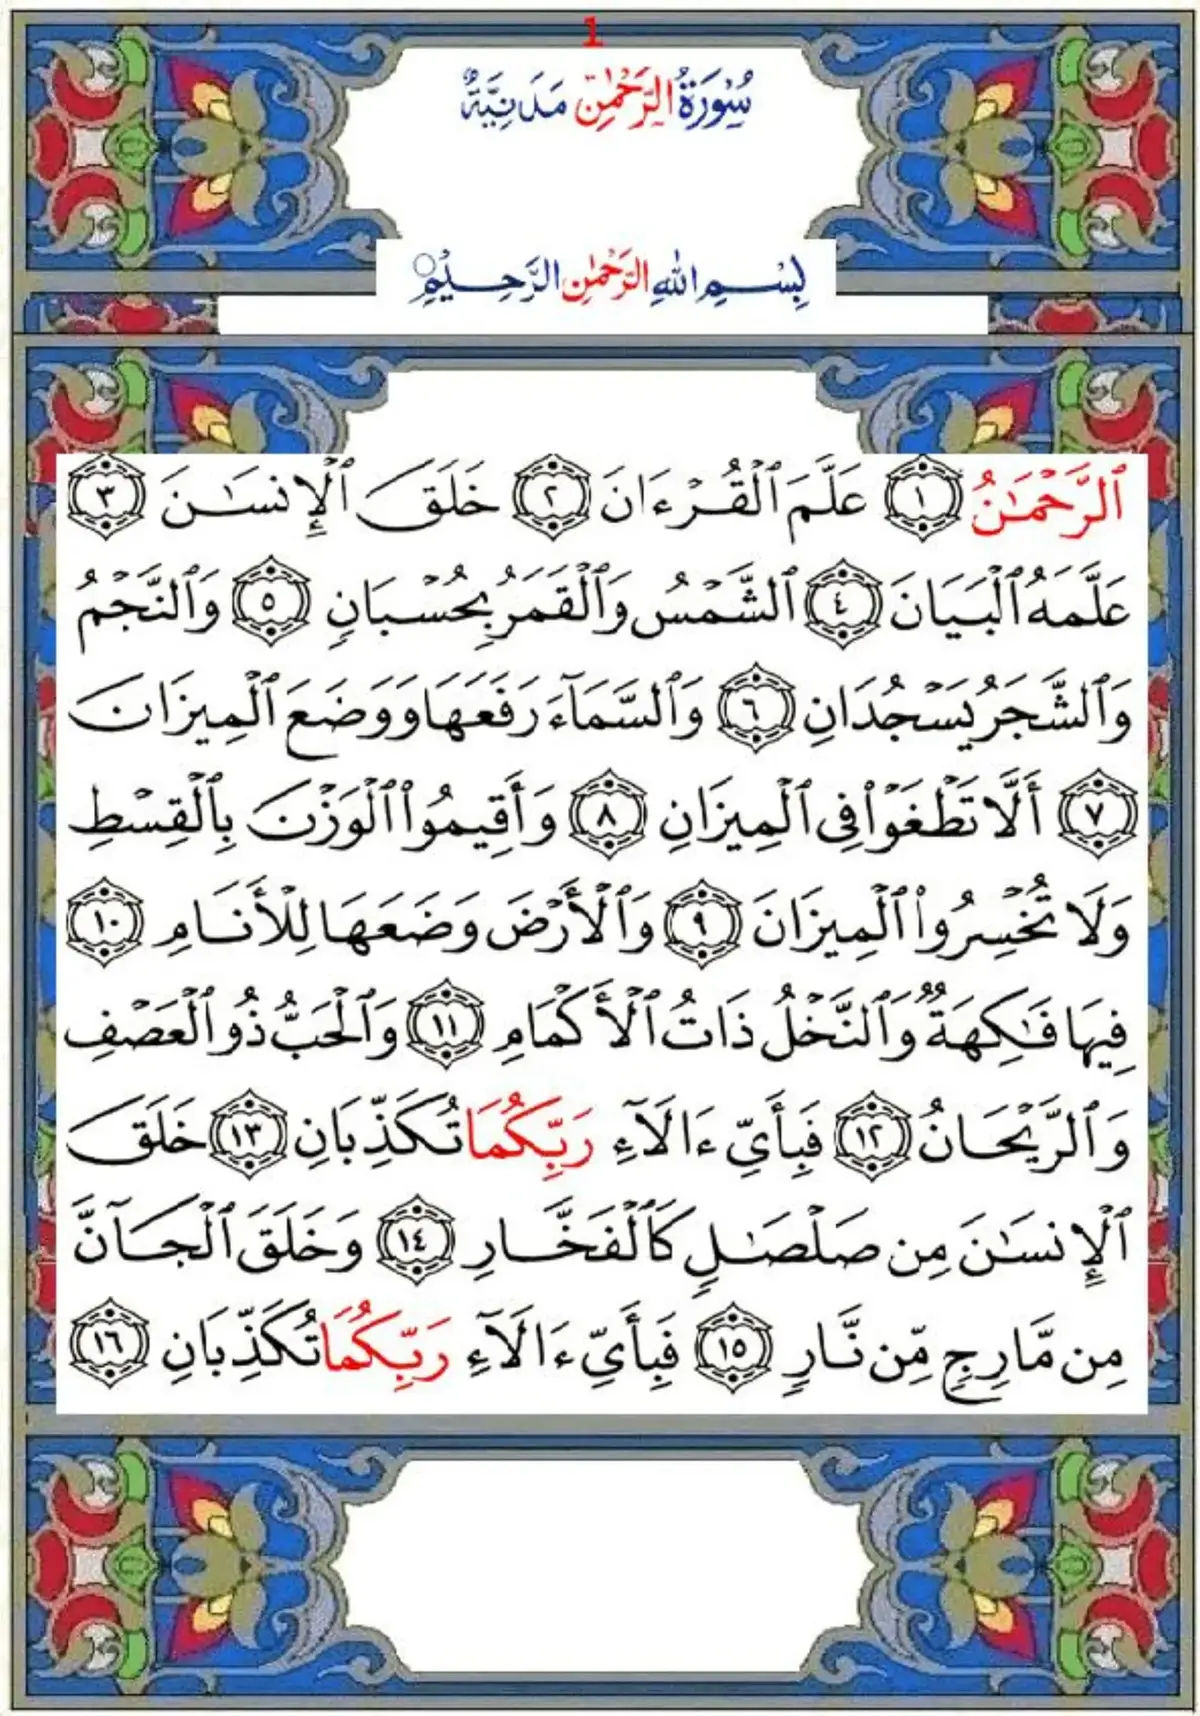 1
سُوْرَةُ الرَّحْمٰنِ مَدَنِيَّةٌ
بِسْمِ اللهِ الرَّحْمٰنِ الرَّحِيْمِ
ٱلرَّحْمَـٰنُ ١ عَلَّمَ ٱلْقُرْءَانَ ٢ خَلَقَ ٱلْإِنسَـٰنَ ٣
عَلَّمَهُ ٱلْبَيَانَ ٤ ٱلشَّمْسُ وَٱلْقَمَرُ بِحُسْبَانٍ ٥ وَٱلنَّجْمُ
وَٱلشَّجَرُ يَسْجُدَانِ ٦ وَٱلسَّمَآءَ رَفَعَهَا وَوَضَعَ ٱلْمِيزَانَ
٧ أَلَّا تَطْغَوْا۟ فِى ٱلْمِيزَانِ ٨ وَأَقِيمُوا۟ ٱلْوَزْنَ بِٱلْقِسْطِ
وَلَا تُخْسِرُوا۟ ٱلْمِيزَانَ ٩ وَٱلْأَرْضَ وَضَعَهَا لِلْأَنَامِ ١٠
فِيهَا فَـٰكِهَةٌ وَٱلنَّخْلُ ذَاتُ ٱلْأَكْمَامِ ١١ وَٱلْحَبُّ ذُو ٱلْعَصْفِ
وَٱلرَّيْحَانُ ١٢ فَبِأَىِّ ءَالَآءِ رَبِّكُمَا تُكَذِّبَانِ ١٣ خَلَقَ
ٱلْإِنسَـٰنَ مِن صَلْصَـٰلٍ كَٱلْفَخَّارِ ١٤ وَخَلَقَ ٱلْجَآنَّ
مِن مَّارِجٍ مِّن نَّارٍ ١٥ فَبِأَىِّ ءَالَآءِ رَبِّكُمَا تُكَذِّبَانِ ١٦